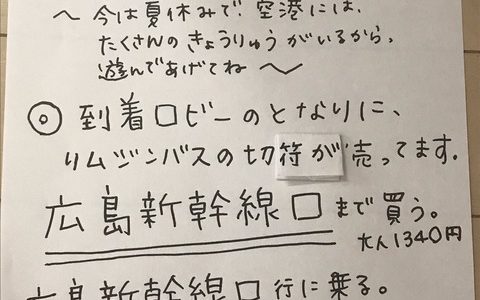 ～今は夏休みで、空港には、
たくさんのきょうりゅうがいるから、
遊んであげてね～
◎到着ロビーのとなりに、
リムジンバスの切符が売ってます。
広島新幹線口まで買う。
大人1340円
広島新幹線口行に乗る。